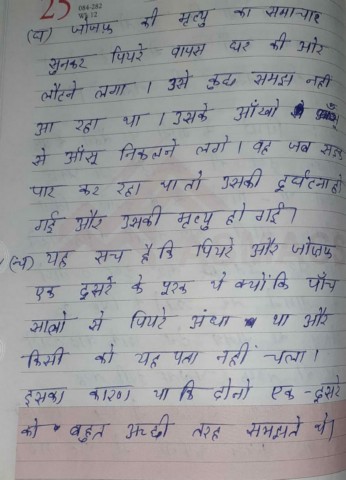 25
084-282
Wk 12
(घ) जोजफ की मृत्यु का समाचार
सुनकर पियरे वापस घर की ओर
लौटने लगा । उसे कुछ समझ नहीं
आ रहा था । उसके आँखो
से आँसू निकलने लगे । वह जब सड़क
पार कर रहा था तो उसकी दुर्घटना हो
गई और उसकी मृत्यु हो गई ।
यह सच है कि पियरे और जोजफ
एक दुसरे के पूरक थे क्योंकि पाँच
सालो से पियरे अंधा था और
किसी को यह पता नहीं चला ।
इसका कारण था कि दोनो एक - दुसरे
को बहुत अच्छी तरह समझते थे।